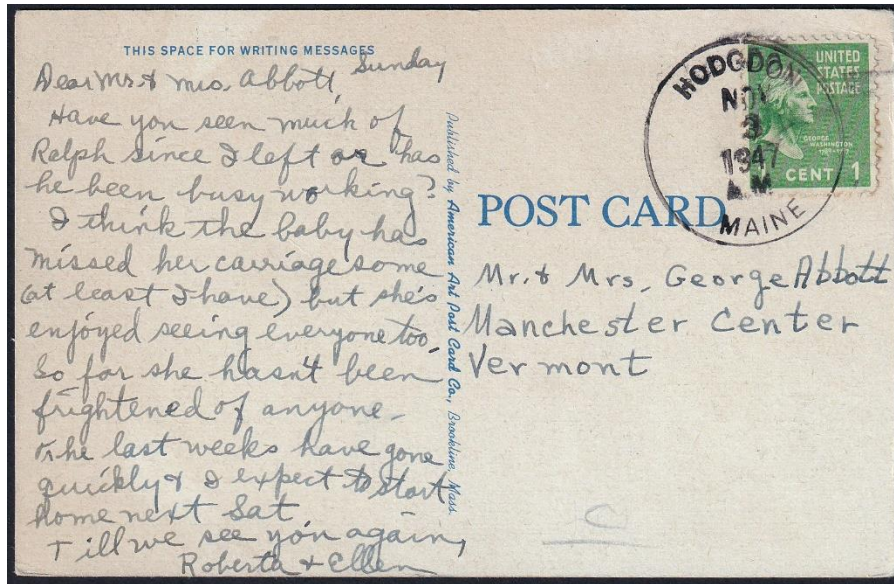 THIS SPACE FOR WRITING MESSAGES
Sunday
Dear Mr. & Mrs. Abbott,
Have you seen much of
Ralph since I left or has
he been busy working?
I think the baby has
missed her carriage some
(at least I have) but she's
enjoyed seeing everyone too.
So far she hasn't been
frightened of anyone.
The last weeks have gone
quickly & I expect to start
home next Sat
Till we see you again,
Roberta & Ellen
Published by American Art Post Card Co., Brookline, Mass.
POST CARD
HODGDON
NOV
3
1947
A.M
MAINE
UNITED
STATES
POSTAGE
GEORGE
WASHINGTON
CENT 1
Mr. & Mrs. George Abbott
Manchester Center
Vermont
C